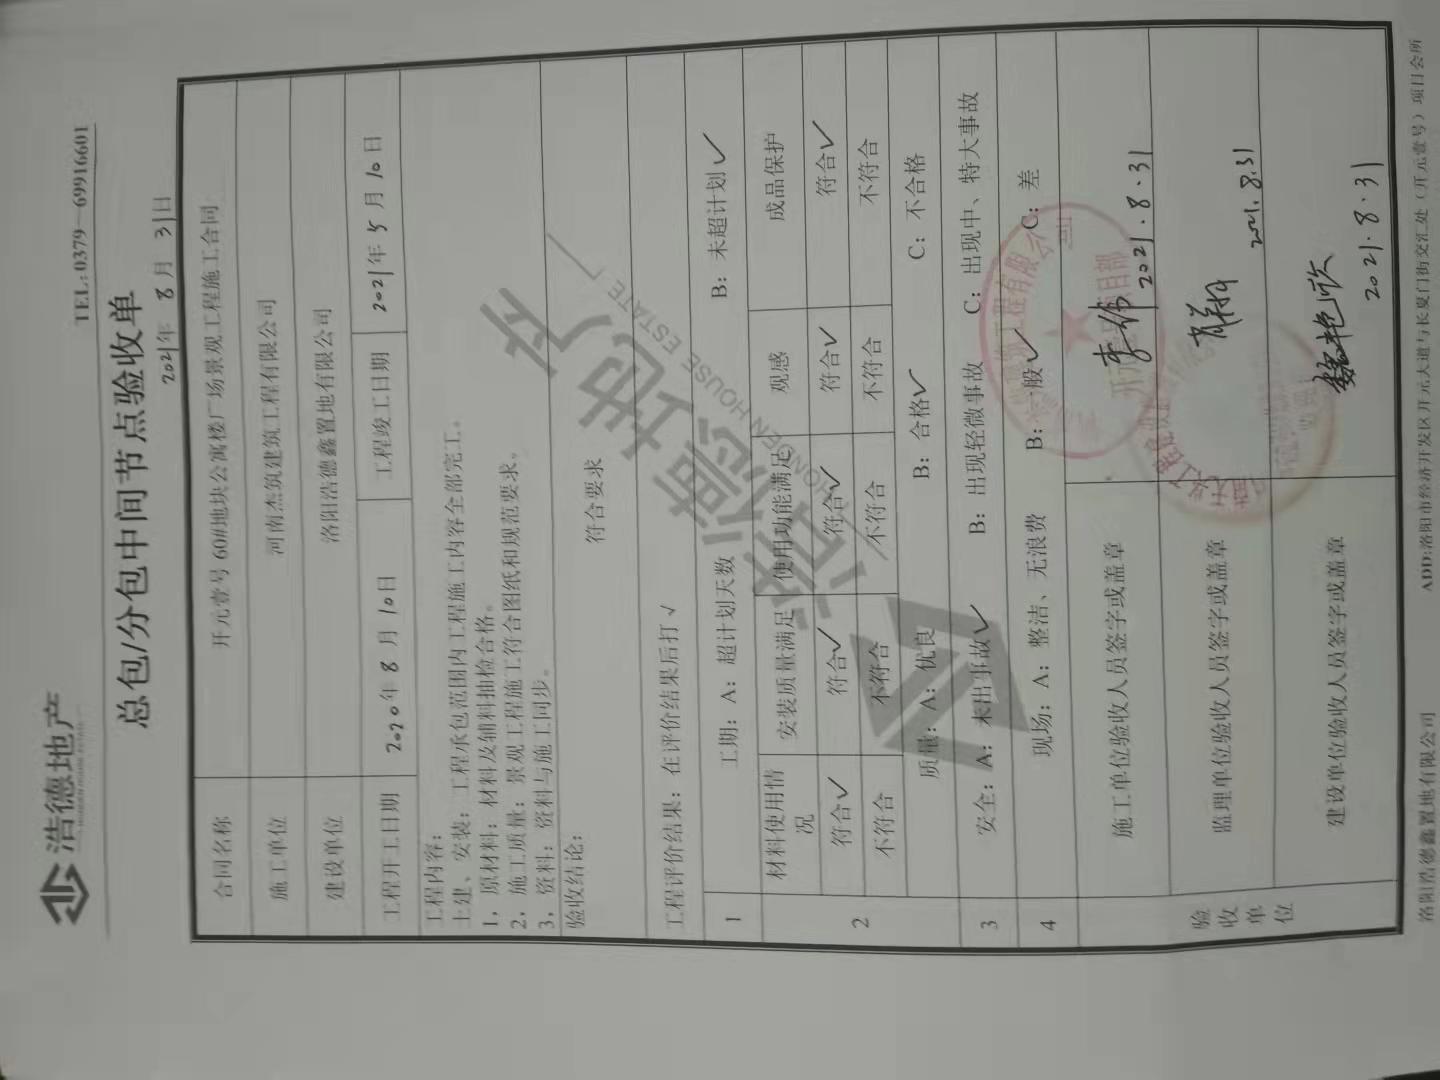 浩德地产
TEL: 0379—69916601
总包/分包中间节点验收单
2021年 8 月 31日
合同名称 开元壹号 60#地块公寓楼广场景观工程施工合同
施工单位 河南杰筑建筑工程有限公司
建设单位 洛阳浩德鑫置地有限公司
工程开工日期 2020年 8 月 10日 工程竣工日期 2021年 5 月 10日
工程内容:
土建、安装:工程承包范围内工程施工内容全部完工。
1,原材料:材料及辅料抽检合格。
2,施工质量:景观工程施工符合图纸和规范要求。
3,资料:资料与施工同步。
验收结论:
符合要求
工程评价结果:在评价结果后打 √
1 工期: A: 超计划天数 B: 未超计划 √
2 材料使用情况 安装质量满足 使用功能满足 观感 成品保护
符合√ 符合√ 符合√ 符合√ 符合√
不符合 不符合 不符合 不符合 不符合
质量: A: 优良 B: 合格√ C: 不合格
3 安全: A: 未出事故√ B: 出现轻微事故 C: 出现中、特大事故
4 现场: A: 整洁、无浪费 B: 一般√ C: 差
验收单位
施工单位验收人员签字或盖章 李伟 2021.8.31
监理单位验收人员签字或盖章 2021.8.31
建设单位验收人员签字或盖章 2021.8.31
浩德地产
HONDEN HOUSE ESTATE
洛阳浩德鑫置地有限公司 ADD:洛阳市经济开发区开元大道与长夏门街交汇处(开元壹号)项目会所